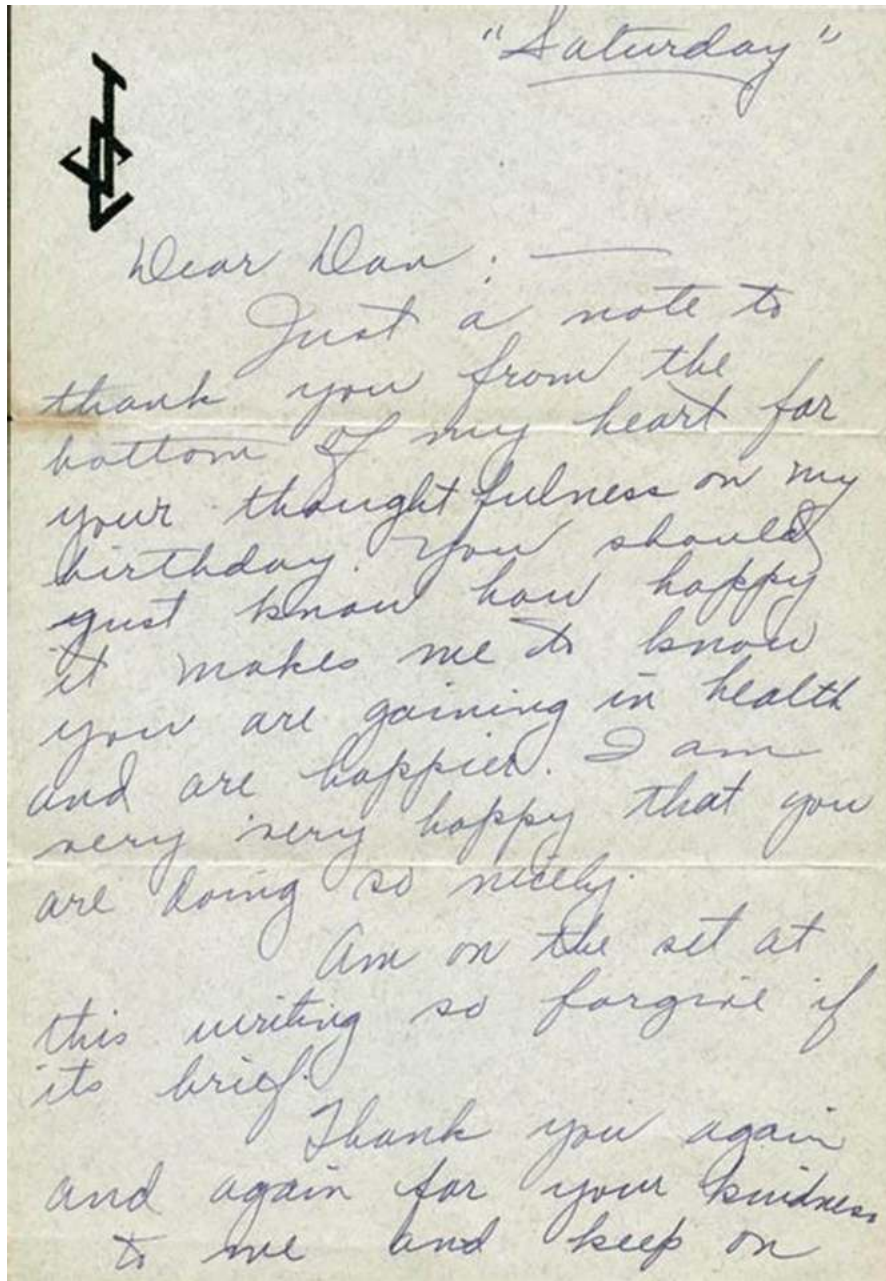 "Saturday"
Dear Dan : —
Just a note to
thank you from the
bottom of my heart for
your thoughtfulness on my
birthday. You should
just know how happy
it makes me to know
you are gaining in health
and are happier. I am
very very happy that you
are doing so nicely.
Am on the set at
this writing so forgive if
its brief.
Thank you again
and again for your kindness
to me and keep on